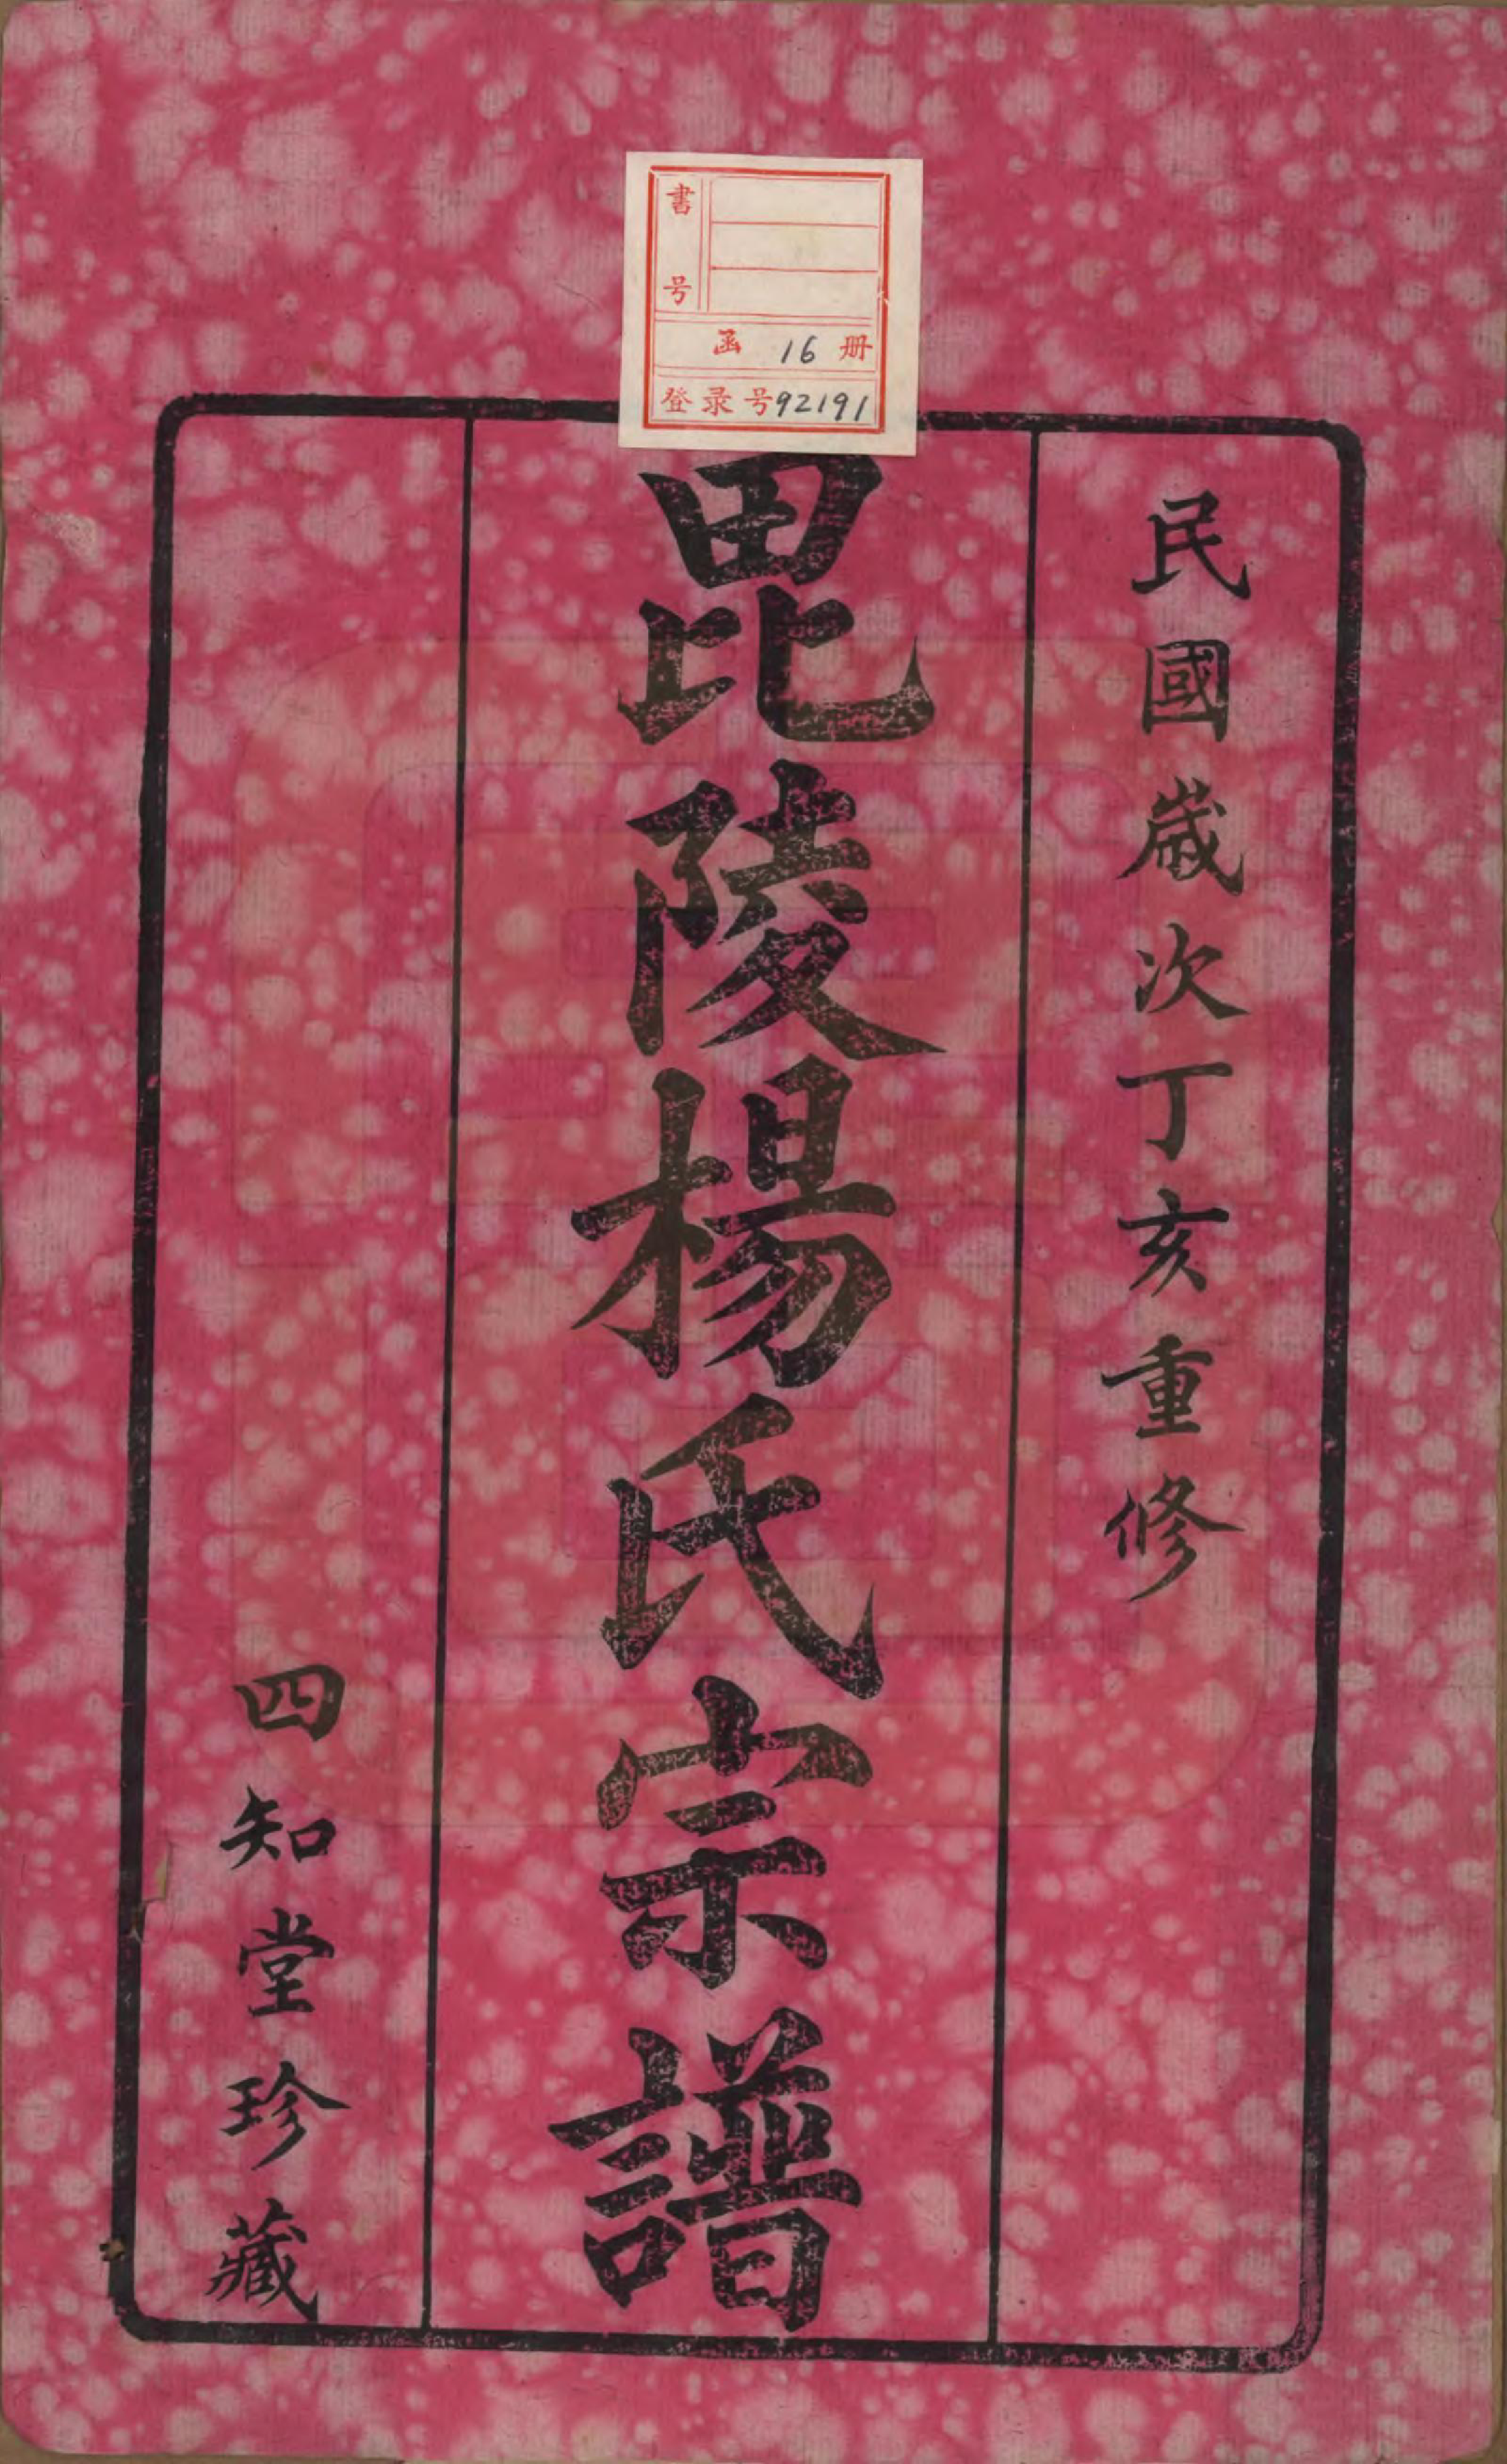 書号
函 16 册
登录号92191
民國歲次丁亥重修
毘陵楊氏宗譜
四知堂珍藏